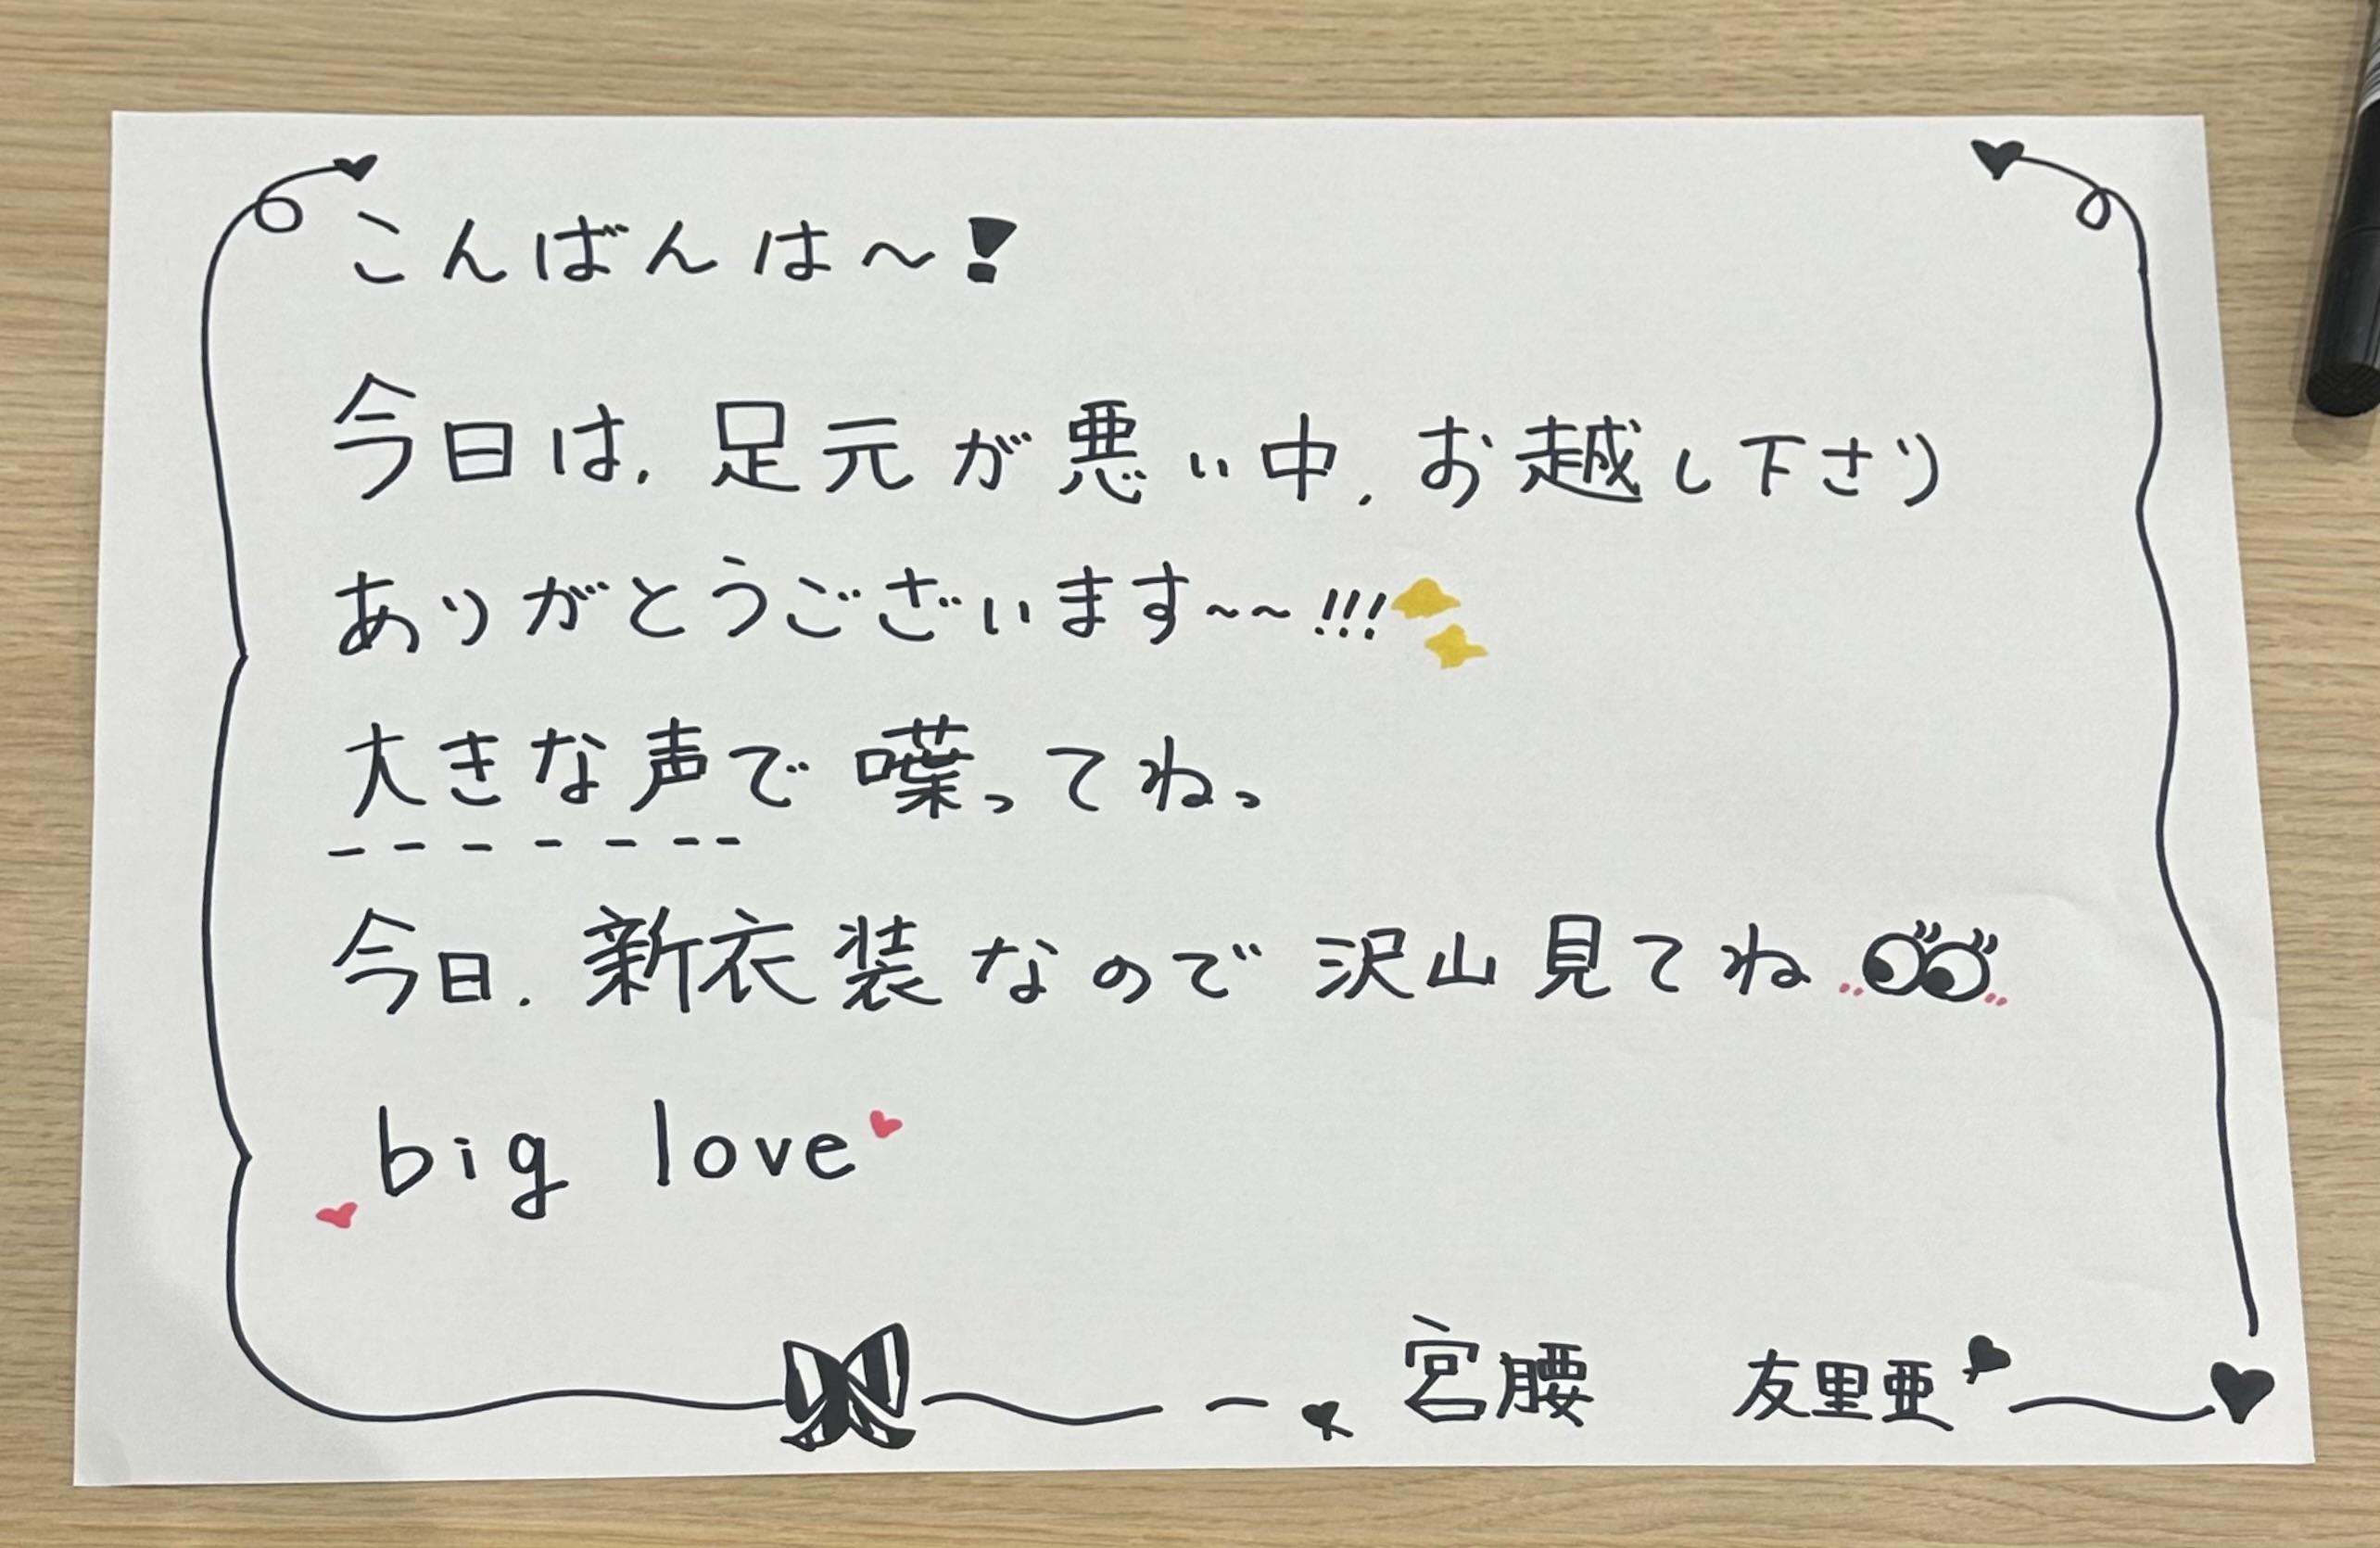 こんばんは〜!
今日は、足元が悪い中、お越し下さり
ありがとうございます~~!!!
大きな声で喋ってねっ
今日、新衣装なので沢山見てね
big love
宮腰 友里亜